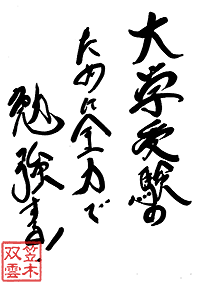 大学受験の
ために全力で
勉強する!
笠木
双雲